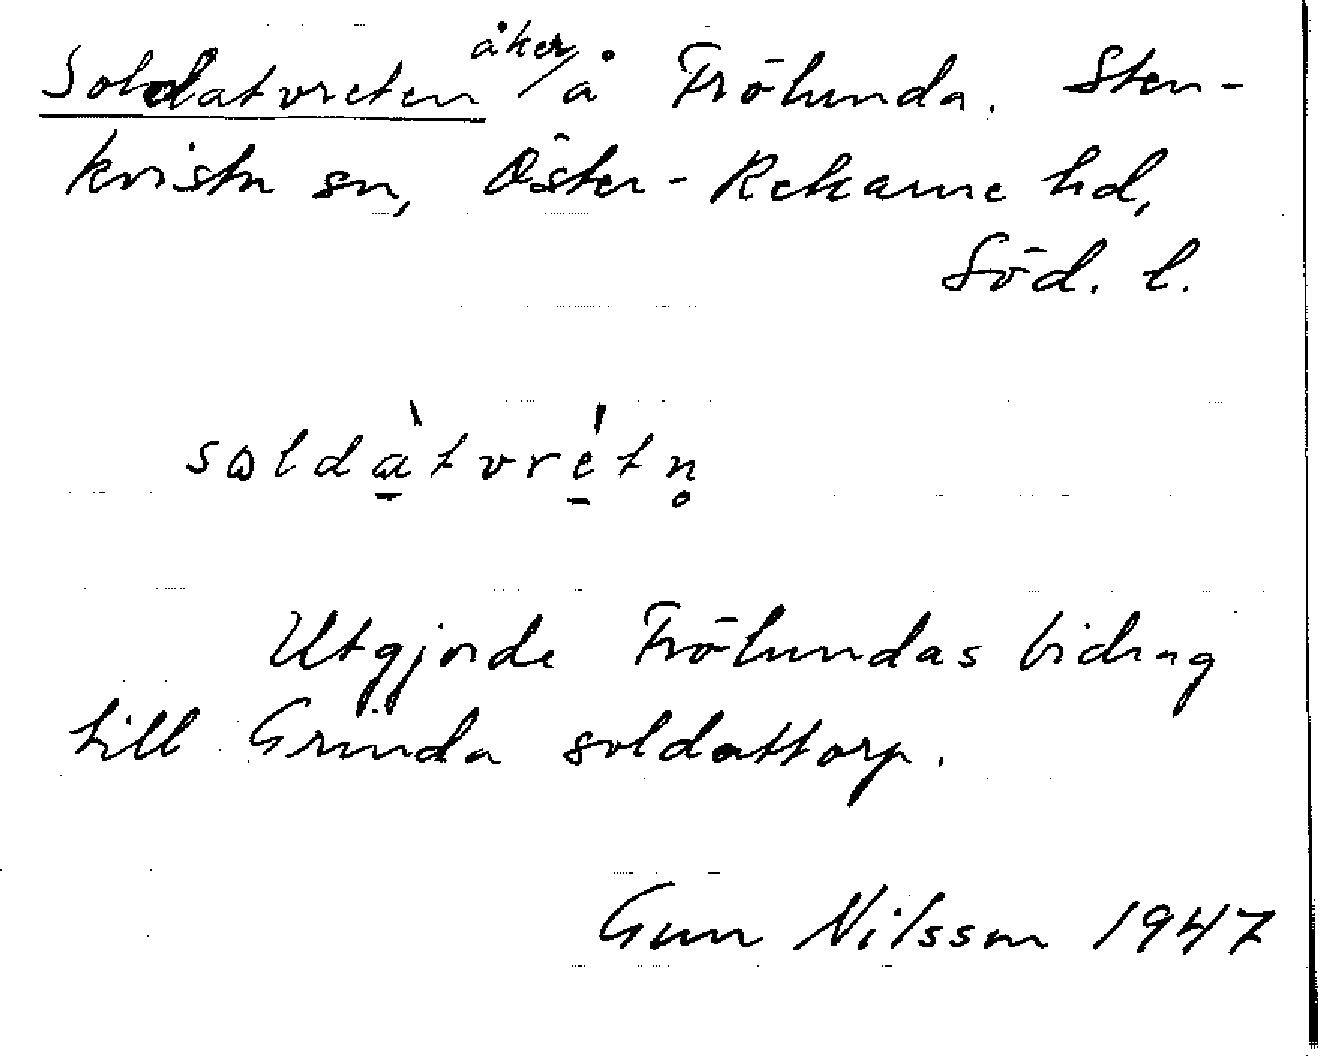 Soldatvreten åker å Frölunda. Sten-
kvista sn, Öster-Rekarne hd,
Söd. l.
soldàtvrétn̥
Utgjorde Frölundas bidrag
till Grinda soldattorp.
Gun Nilsson 1947